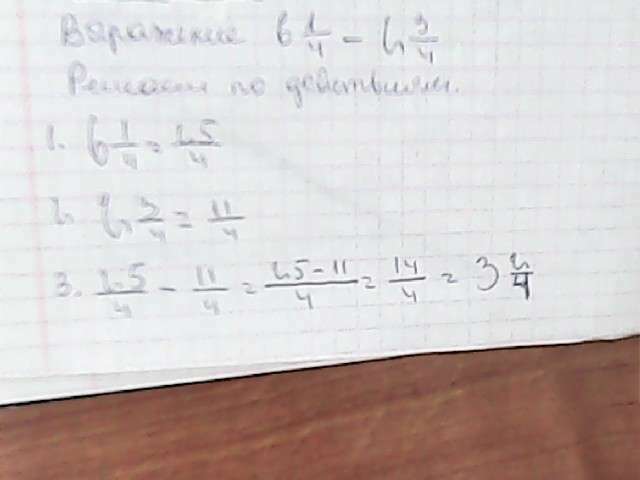 Выражение 6 1/4 - 2 3/4
Решаем по действиям.
1. 6 1/4 = 25/4
2. 2 3/4 = 11/4
3. 25/4 - 11/4 = 25-11/4 = 14/4 = 3 2/4